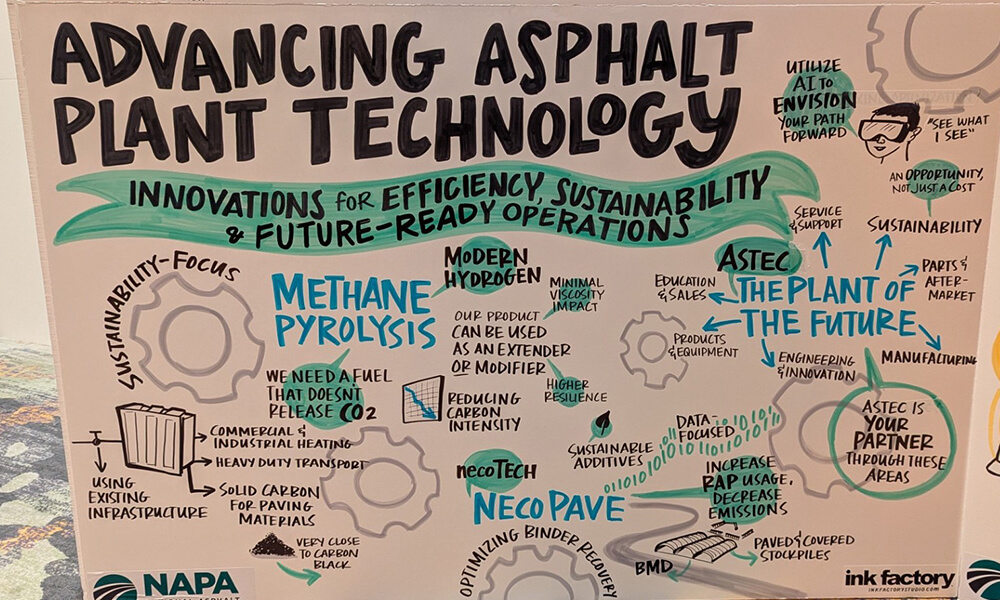 ADVANCING ASPHALT
PLANT TECHNOLOGY
INNOVATIONS for EFFICIENCY, SUSTAINABILITY
& FUTURE-READY OPERATIONS
UTILIZE
AI TO
ENVISION
YOUR PATH
FORWARD
"SEE WHAT
I SEE"
AN OPPORTUNITY,
NOT JUST A COST
SUSTAINABILITY-FOCUS
METHANE
PYROLYSIS
MODERN
HYDROGEN
MINIMAL
VISCOSITY
IMPACT
OUR PRODUCT
CAN BE USED
AS AN EXTENDER
OR MODIFIER
HIGHER
RESILIENCE
WE NEED A FUEL
THAT DOESN'T
RELEASE CO2
REDUCING
CARBON
INTENSITY
COMMERCIAL &
INDUSTRIAL HEATING
HEAVY DUTY TRANSPORT
SOLID CARBON
FOR PAVING
MATERIALS
USING
EXISTING
INFRASTRUCTURE
VERY CLOSE
TO CARBON
BLACK
ASTEC
THE PLANT OF
THE FUTURE
SERVICE
& SUPPORT
SUSTAINABILITY
PARTS &
AFTER-
MARKET
MANUFACTURING
ENGINEERING
& INNOVATION
PRODUCTS
& EQUIPMENT
EDUCATION
& SALES
ASTEC IS
YOUR
PARTNER
THROUGH THESE
AREAS
necoTECH
NECOPAVE
SUSTAINABLE
ADDITIVES
DATA-
FOCUSED
INCREASE
RAP USAGE,
DECREASE
EMISSIONS
OPTIMIZING BINDER RECOVERY
BMD
PAVED & COVERED
STOCKPILES
NAPA
ink factory
INKFACTORYSTUDIO.COM